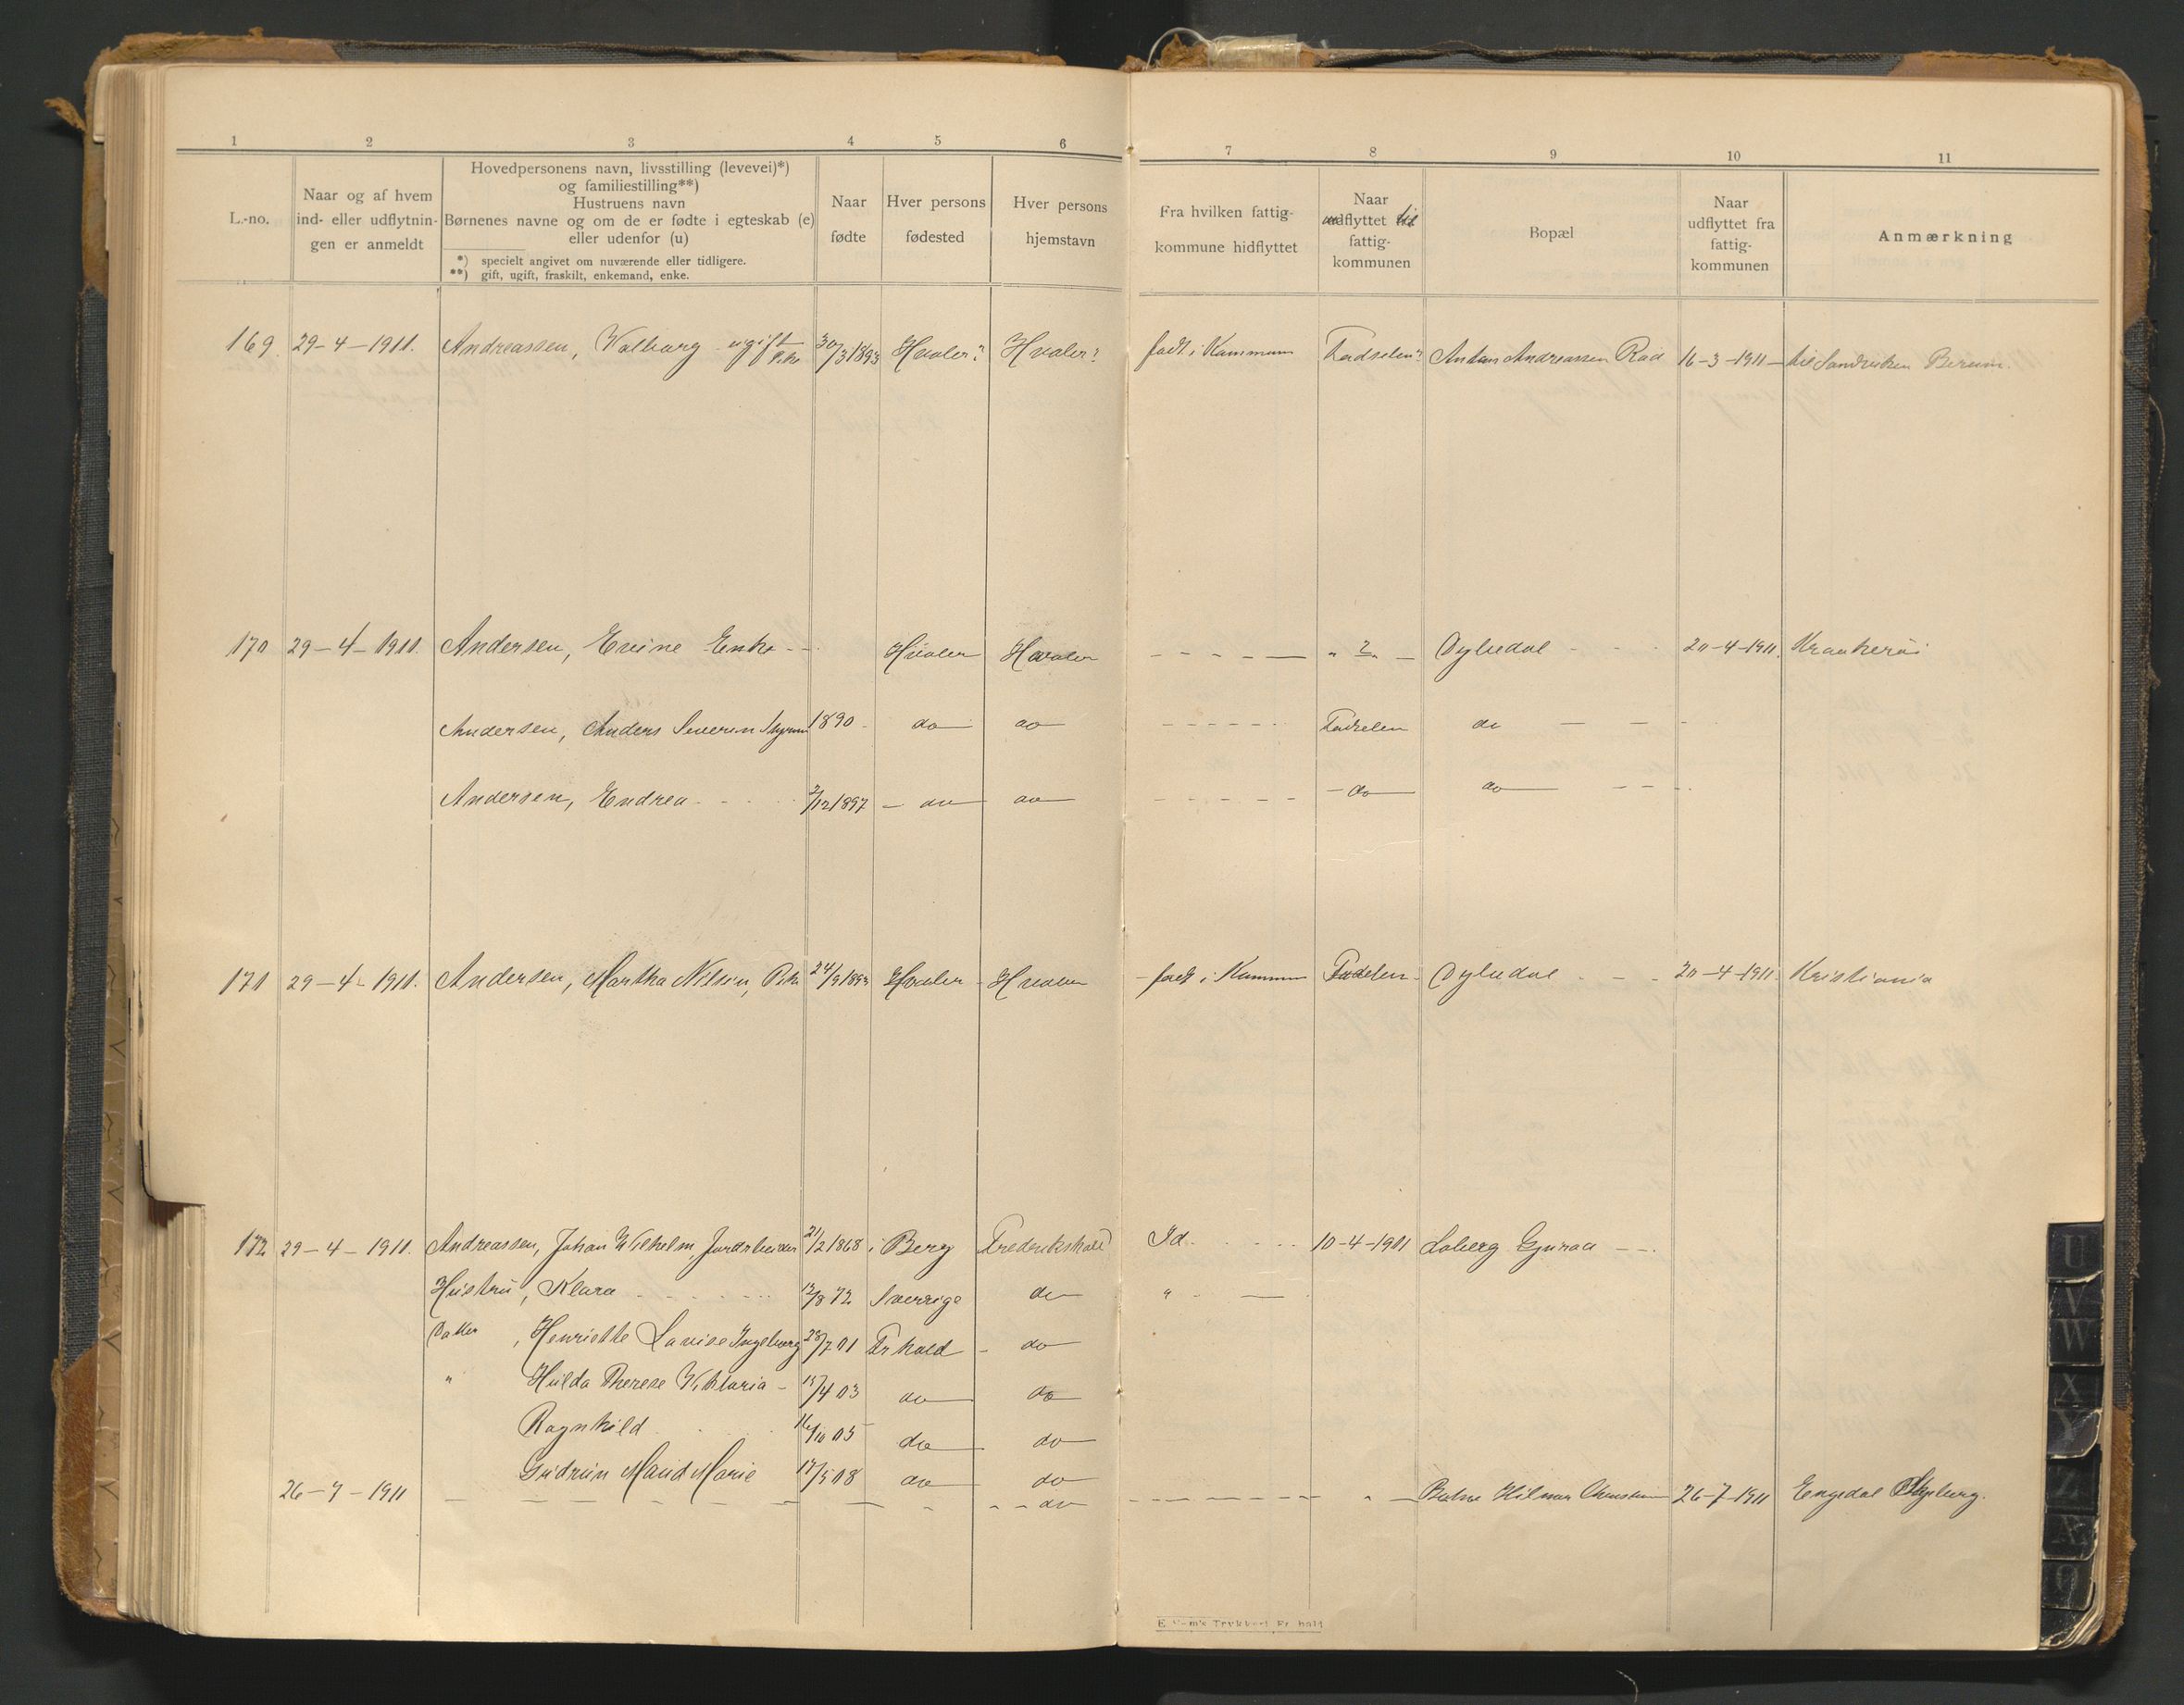 1 2 3 4 5 6 7 8 9 10 11
L.-no.
Naar og af hvem
ind- eller udflytnin-
gen er anmeldt
Hovedpersonens navn, livsstilling (levevei)*)
og familiestilling**)
Hustruens navn
Børnenes navne og om de er fødte i egteskab (e)
eller udenfor (u)
*) specielt angivet om nuværende eller tidligere.
**) gift, ugift, fraskilt, enkemand, enke.
Naar
fødte
Hver persons
fødested
Hver persons
hjemstavn
Fra hvilken fattig-
kommune hidflyttet
Naar
indflyttet til
fattig-
kommunen
Bopæl
Naar
udflyttet fra
fattig-
kommunen
Anmærkning
169 29-4-1911. Andreassen, Valborg ugift Pike 30/3 1893 Hvaler? Hvaler? født i Kommunen Fødselen? Anton Andreassen Rød 16-3-1911 - til Sandviken Berum.
170 29-4-1911. Andersen, Evine Enke - - Hvaler Hvaler - - - - - " ? " - Dyludal - - - 20-4-1911. Kraakerøi
Andersen, Anders Severin 1890 - do do - - - - - Fødselen do - - -
Andersen, Endrea - - - /12 1897 - do do - - - - - - do do - - -
171 29-4-1911. Andersen, Martha Nilsen, Pike 24/9 1893 Hvaler - Hvaler - født i Kommunen Fødselen - Dyludal - - - 20-4-1911. Kristiania
172 29-4-1911. Andreassen, Johan Vilhelm, Jordarbeider 21/2 1868 i Berg Fredrikshald Id. - - - - 10-4-1911 Loberg - - -
Hustru, Klara - - - - - 12/8 72 Sverrige do " - -
Datter, Henriette Lovise Ingeborg 28/7 01 Fr hald - do
" Hulda Therese Viktoria - 15/4 03 do do
Ragnhild - - - 16/10 05 do do
Gudrun Maud Marie 17/5 08 do do
26-7-1911 - - - - - - - - - - - - do - - - - - - - " - Hilmar 26-7-1911 Engdal
E. Trykkeri Fr.hald
U
V
W
X
Y
Z
Æ
Ø